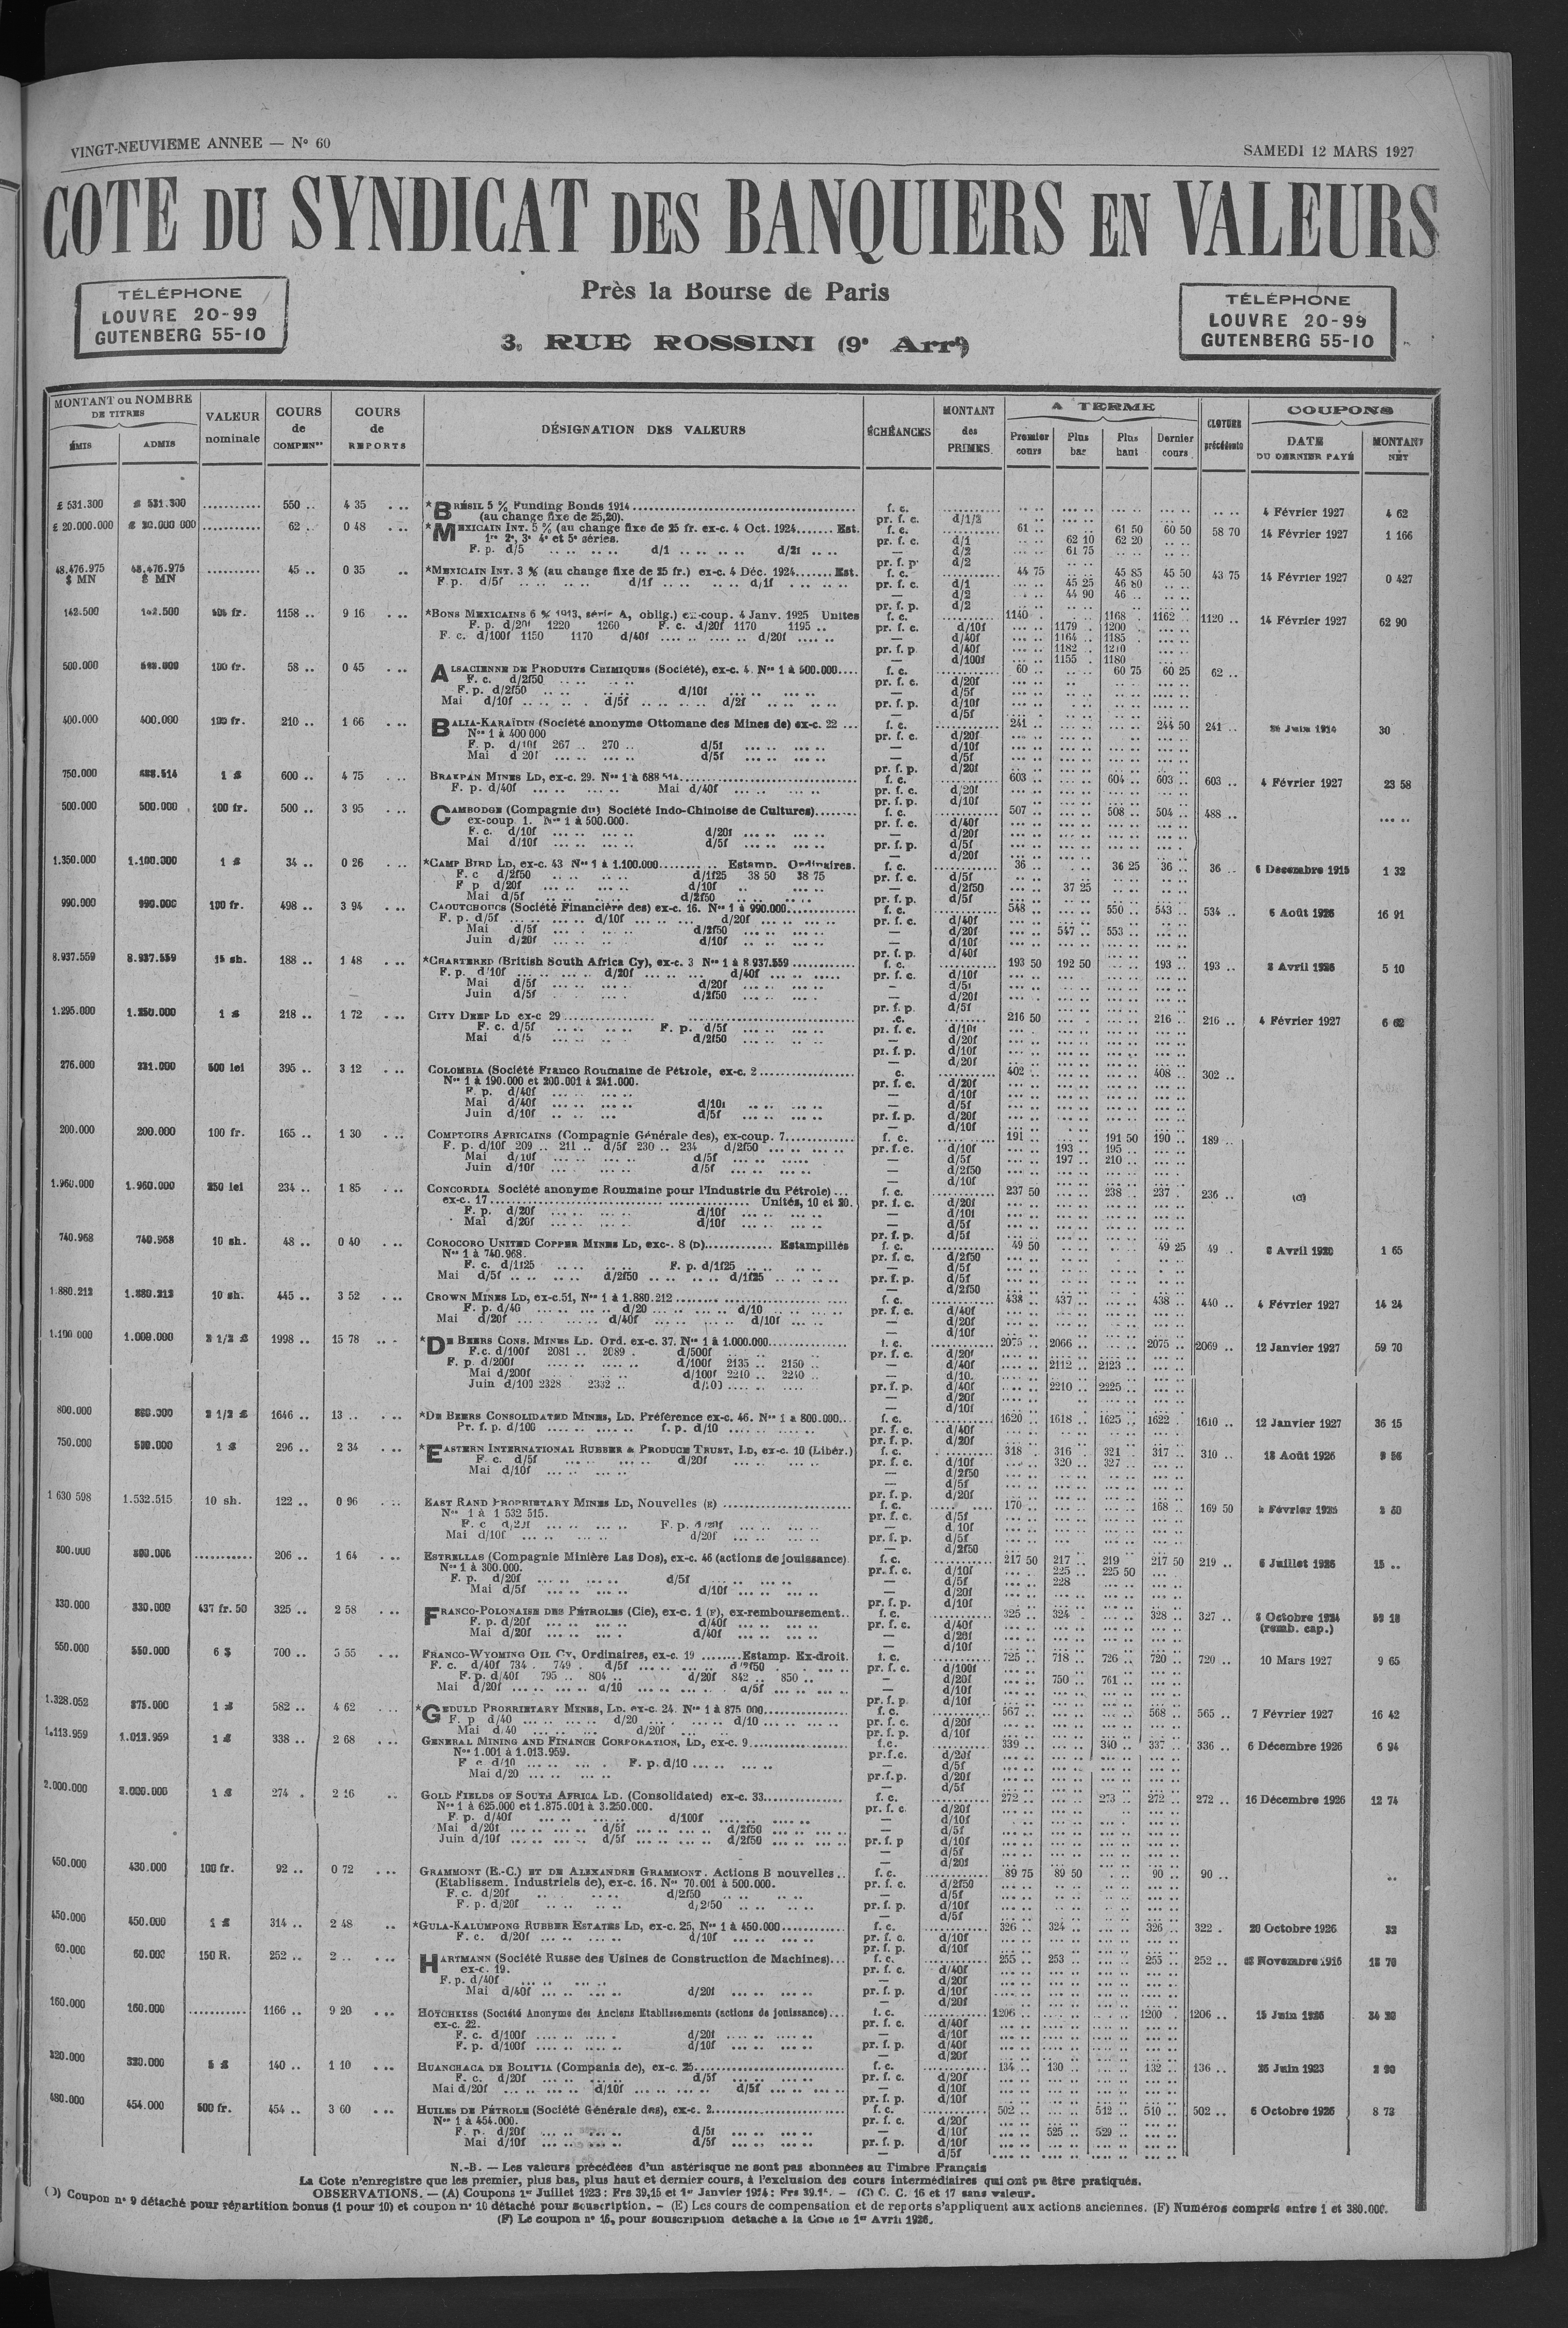 VINGT-NEUVIEME ANNEE — N° 60
SAMEDI 12 MARS 1927
COTE DU SYNDICAT DES BANQUIERS EN VALEURS
TÉLÉPHONE
LOUVRE 20-99
GUTENBERG 55-10
Près la Bourse de Paris
3, RUE ROSSINI (9e Arrt)
TÉLÉPHONE
LOUVRE 20-99
GUTENBERG 55-10
MONTANT ou NOMBRE DE TITRES
ÉMIS ADMIS
VALEUR nominale
COURS de COMPENon
COURS de REPORTS
DÉSIGNATION DES VALEURS
ÉCHÉANCES
MONTANT des PRIMES
A TERME
Premier cours
Plus bas
Plus haut
Dernier cours
CLOTURE précédente
COUPONS
DATE DU DERNIER PAYÉ
MONTANT NET
£ 531.300 £ 531.300 ........... 550 .. 4 35 *BRÉSIL 5 % Funding Bonds 1914 f. c. 4 Février 1927 4 62
(au change fixe de 25,20). pr. f. c. d/1/2
£ 20.000.000 62 .. 0 48 *MEXICAIN INT. 5 % (au change fixe de 25 fr. ex-c. 4 Oct. 1924....... Est. f. c. 61 .. 61 50 60 50 58 70 14 Février 1927 1 166
1re 2e, 3e 4e et 5e séries. pr. f. c. d/1 62 10 62 20
F. p. d/5 d/1 d/2f — d/2 61 75
48.476.975 $ MN 48.476.975 $ MN 45 .. 0 35 *MEXICAIN INT. 3 % (au change fixe de 25 fr.) ex-c. 4 Déc. 1924....... Est. f. c. 44 75 45 85 45 50 43 75 14 Février 1927 0 427
F. p. d/5f d/1f d/1f d/1 45 25 46 80
— d/2 44 90 46 ..
142.500 142.500 1158 .. 9 16 *BONS MEXICAINS 6 % 1913, série A, oblig.) ex-coup. 4 Janv. 1925 Unités f. c. 1140 1168 1162 1120 .. 14 Février 1927 62 90
F. p. d/20f 1220 1260 F. c. d/20f 1170 1195 .. pr. f. c. d/10f 1179 1200
F. c. d/100f 1150 1170 d/40f d/20f — d/40f 1164 1185
pr. f. p. d/40f 1182 1210
— d/100f 1155 1180
500.000 100 fr. 58 .. 0 45 ALSACIENNE DE PRODUITS CHIMIQUES (Société), ex-c. 4. Nos 1 à 500.000.... f. c. 60 .. 60 75 60 25 62 ..
F. c. d/2f50 pr. f. c. d/20f
F. p. d/2f50 d/10f — d/5f
Mai d/10f d/5f d/2f pr. f. p. d/10f
— d/5f
400.000 400.000 100 fr. 210 .. 1 66 BALIA-KARAÏDIN (Société anonyme Ottomane des Mines de) ex-c. 22 ... f. c. 241 .. 244 50 241 .. 30
Nos 1 à 400 000 pr. f. c. d/20f
F. p. d/10f 267 .. 270 .. d/5f — d/10f
Mai d 20f d/5f — d/5f
pr. f. p. d/20f
750.000 688.514 1 £ 600 .. 4 75 BRAKPAN MINES LD, ex-c. 29. Nos 1 à 688 514 f. c. 603 .. 604 .. 603 .. 603 .. 4 Février 1927 23 58
F. p. d/40f Mai d/40f pr. f. c. d/20f
pr. f. p. d/10f
500.000 500.000 100 fr. 500 .. 3 95 CAMBODGE (Compagnie du) Société Indo-Chinoise de Cultures) f. c. 507 .. 508 .. 504 .. 488 ..
ex-coup. 1. Nos 1 à 500.000. pr. f. c. d/40f
F. c. d/10f d/20f — d/20f
Mai d/10f d/5f pr. f. p. d/5f
— d/20f
1.350.000 1.100.000 1 £ 34 .. 0 26 *CAMP BIRD LD, ex-c. 43 Nos 1 à 1.100.000 Estamp. Ordinaires. f. c. 36 .. 36 25 36 .. 36 .. 6 Décembre 1915 1 32
F. c d/2f50 d/1f25 38 50 38 75 pr. f. c. d/5f
F p d/20f d/10f — d/2f50 37 25
Mai d/5f d/2f50 pr. f. p. d/5f
990.000 990.000 100 fr. 498 .. 3 94 CAOUTCHOUCS (Société Financière des) ex-c. 16. Nos 1 à 990.000 f. c. 548 .. 550 .. 543 .. 534 .. 6 Août 1926 16 91
F. p. d/5f d/10f d/20f pr. f. c. d/40f
Mai d/5f d/2f50 — d/20f 547 .. 553 ..
Juin d/20f d/10f — d/10f
pr. f. p. d/40f
8.937.559 8.937.559 15 sh. 188 .. 1 48 *CHARTERED (British South Africa Cy), ex-c. 3 Nos 1 à 8.937.559 f. c. 193 50 192 50 193 .. 193 .. 5 10
F. p. d/10f d/20f d/40f pr. f. c. d/10f
Mai d/5f d/20f — d/5f
Juin d/5f d/2f50 — d/20f
pr. f. p. d/5f
1.295.000 1.250.000 1 £ 218 .. 1 72 CITY DEEP LD ex-c 29 216 50 216 .. 216 .. 4 Février 1927 6 62
F. c. d/5f F. p. d/5f pr. f. c. d/10f
Mai d/5 d/2f50 — d/20f
pr. f. p. d/10f
— d/20f
276.000 231.000 500 lei 395 .. 3 12 COLOMBIA (Société Franco Roumaine de Pétrole, ex-c. 2 402 .. 408 .. 302 ..
Nos 1 à 190.000 et 206.001 à 241.000. pr. f. c. d/20f
F. p. d/40f — d/10f
Mai d/40f d/10f — d/5f
Juin d/10f d/5f pr. f. p. d/20f
— d/10f
200.000 200.000 100 fr. 165 .. 1 30 COMPTOIRS AFRICAINS (Compagnie Générale des), ex-coup. 7 f. c. 191 .. 191 50 190 .. 189 ..
F. p. d/10f 209 .. 211 .. d/5f 230 .. 234 d/2f50 pr. f. c. d/10f 193 .. 195 ..
Mai d/10f d/5f — d/5f 197 .. 210 ..
Juin d/10f d/5f — d/2f50
— d/10f
1.960.000 1.960.000 250 lei 234 .. 1 85 CONCORDIA Société anonyme Roumaine pour l'Industrie du Pétrole) ... f. c. 237 50 238 .. 237 .. 236 .. (C)
ex-c. 17 Unités, 10 et 20. pr. f. c. d/20f
F. p. d/20f d/10f — d/10f
Mai d/20f d/10f — d/5f
pr. f. p. d/5f
740.968 740.968 10 sh. 48 .. 0 40 COROCORO UNITED COPPER MINES LD, exc-. 8 (D) Estampillés f. c. 49 50 49 25 49 .. 1 65
Nos 1 à 740.968. pr. f. c. d/2f50
F. c. d/1f25 F. p. d/1f25 — d/5f
Mai d/5f d/2f50 d/1f25 pr. f. p. d/5f
— d/2f50
1.880.212 1.880.212 10 sh. 445 .. 3 52 CROWN MINES LD, ex-c.51, Nos 1 à 1.880.212 f. c. 438 .. 437 .. 438 .. 440 .. 4 Février 1927 14 24
F. p. d/40 d/20 d/10 pr. f. c. d/40f
Mai d/20f d/40f d/10f — d/20f
— d/10f
1.100 000 1.000.000 2 1/2 £ 1998 .. 15 78 *DE BEERS CONS. MINES LD. Ord. ex-c. 37. Nos 1 à 1.000.000 f. c. 2075 .. 2066 .. 2075 .. 2069 .. 12 Janvier 1927 59 70
F.c. d/100f 2081 .. 2089 . d/500f pr. f. c. d/20f
F. p. d/200f d/100f 2135 .. 2150 .. — d/40f 2112 .. 2123 ..
Mai d/200f d/100f 2210 .. 2240 .. — d/10.
Juin d/100 2328 2332 .. d/100 pr. f. p. d/40f 2210 .. 2225 ..
— d/20f
— d/10f
800.000 2 1/2 £ 1646 .. 13 .. *DE BEERS CONSOLIDATED MINES, LD. Préférence ex-c. 46. Nos 1 à 800.000 f. c. 1620 .. 1618 .. 1625 .. 1622 .. 1610 .. 12 Janvier 1927 36 15
Pr. f. p. d/100 f. p. d/10 pr. f. c. d/40f
pr. f. p. d/20f
750.000 1 £ 296 .. 2 34 *EASTERN INTERNATIONAL RUBBER & PRODUCE TRUST, LD, ex-c. 10 (Libér.) f. c. 318 .. 316 .. 321 .. 317 .. 310 .. 18 Août 1926
F. c. d/5f d/20f pr. f. c. d/10f 320 .. 327 ..
Mai d/10f — d/2f50
— d/5f
pr. f. p. d/20f
1 630 598 1.532.515 10 sh. 122 .. 0 96 EAST RAND PROPRIETARY MINES LD, Nouvelles (E) f. c. 170 .. 168 .. 169 50
Nos 1 à 1 532 515. pr. f. c. d/5f
F. c d/20f F. p. d/20f — d/10f
Mai d/10f d/20f pr. f. p. d/5f
— d/2f50
300.000 206 .. 1 64 ESTRELLAS (Compagnie Minière Las Dos), ex-c. 46 (actions de jouissance) f. c. 217 50 217 .. 219 217 50 219 .. 6 Juillet 1926 15 ..
Nos 1 à 300.000. pr. f. c. d/10f 225 .. 225 50
F. p. d/20f d/5f — d/5f 228
Mai d/5f d/10f — d/20f
pr. f. p. d/10f
330.000 330.000 437 fr. 50 325 .. 2 58 FRANCO-POLONAISE DES PÉTROLES (Cie), ex-c. 1 (F), ex-remboursement.. f. c. 325 .. 324 .. 328 .. 327 .. 8 Octobre 1924
F. p. d/20f d/40f pr. f. c. d/40f (remb. cap.)
Mai d/20f d/40f — d/20f
— d/10f
550.000 550.000 6 $ 700 .. 5 55 FRANCO-WYOMING OIL Cy, Ordinaires, ex-c. 19 Estamp. Ex-droit. f. c. 725 .. 718 .. 726 .. 720 .. 720 .. 10 Mars 1927 9 65
F. c. d/40f 734 . 749 . d/5f d/2f50 pr. f. c. d/100f
F. p. d/40f 795 .. 804 .. d/20f 842 .. 850 .. — d/20f 750 .. 761 ..
Mai d/20f d/10 d/5f — d/10f
pr. f. p. d/10f
1.328.052 875.000 1 £ 582 .. 4 62 *GEDULD PRORRIETARY MINES, LD. ex-c. 24. Nos 1 à 875 000 f. c. 567 .. 568 .. 565 .. 7 Février 1927 16 42
F. p d/40 d/20 d/10 pr. f. c. d/20f
Mai d.40 d/20f pr. f. p. d/10f
1.113.959 1.013.959 1 £ 338 .. 2 68 GENERAL MINING AND FINANCE CORPORATION, LD, ex-c. 9 f. c. 339 .. 340 .. 337 .. 336 .. 6 Décembre 1926 6 94
Nos 1.001 à 1.013.959. pr.f.c. d/20f
F c. d/10 F. p. d/10 — d/5f
Mai d/20 pr.f.p. d/20f
— d/5f
2.000.000 2.000.000 1 £ 274 . 2 16 GOLD FIELDS OF SOUTH AFRICA LD. (Consolidated) ex-c. 33 f. c. 272 .. 273 .. 272 .. 272 .. 16 Décembre 1926 12 74
Nos 1 à 625.000 et 1.875.001 à 3.250.000. pr. f. c. d/20f
F. p. d/40f d/100f — d/10f
Mai d/20f d/5f d/2f50 — d/5f
Juin d/10f d/5f d/2f50 pr. f. p d/10f
— d/5f
— d/20f
450.000 430.000 100 fr. 92 .. 0 72 GRAMMONT (E.-C.) ET DE ALEXANDRE GRAMMONT. Actions B nouvelles .. f. c. 89 75 89 50 90 .. 90 ..
(Etablissem. Industriels de), ex-c. 16. Nos 70.001 à 500.000. pr. f. c. d/2f50
F. c. d/20f d/2f50 — d/5f
F. p. d/20f d/2f50 pr. f. p. d/10f
— d/5f
450.000 450.000 1 £ 314 .. 2 48 *GULA-KALUMPONG RUBBER ESTATES LD, ex-c. 25, Nos 1 à 450.000 f. c. 326 .. 324 .. 326 .. 322 . 20 Octobre 1926
F. c. d/20f d/10f pr. f. c. d/10f
pr. f. p. d/10f
60.000 60.000 150 R. 252 .. 2 .. HARTMANN (Société Russe des Usines de Construction de Machines)... f. c. 255 .. 253 .. 255 .. 252 ..
ex-c. 19. pr. f. c. d/40f
F. p. d/40f — d/20f
Mai d/40f d/20f pr. f. p. d/10f
— d/20f
160.000 160.000 1166 .. 9 20 HOTCHKISS (Société Anonyme des Anciens Etablissements (actions de jouissance)... f. c. 1206 .. 1200 . 1206 .. 15 Juin 1926
ex-c. 22. pr. f. c. d/40f
F. c. d/100f d/20f — d/10f
F. p. d/100f d/10f pr. f. p. d/40f
— d/20f
320.000 320.000 5 £ 140 .. 1 10 HUANCHACA DE BOLIVIA (Compania de), ex-c. 25 f. c. 134 .. 130 .. 132 .. 136 .. 26 Juin 1923
F. c. d/20f d/5f pr. f. c. d/20f
Mai d/20f d/10f d/5f — d/10f
pr. f. p. d/10f
480.000 454.000 500 fr. 454 .. 3 60 HUILES DE PÉTROLE (Société Générale des), ex-c. 2 f. c. 502 .. 512 .. 510 .. 502 .. 6 Octobre 1926 8 73
Nos 1 à 454.000. pr. f. c. d/20f
F. p. d/20f d/5f — d/10f 525 .. 529 ..
Mai d/10f d/5f pr. f. p. d/10f
— d/5f
N.-B. — Les valeurs précédées d'un astérisque ne sont pas abonnées au Timbre Français
La Cote n'enregistre que les premier, plus bas, plus haut et dernier cours, à l'exclusion des cours intermédiaires qui ont pu être pratiqués.
OBSERVATIONS. — (A) Coupons 1er Juillet 1923 : Frs 39,15 et 1er Janvier 1924 : Frs 39.15. — (C) C. C. 16 et 17 sans valeur.
(D) Coupon n° 9 détaché pour répartition bonus (1 pour 10) et coupon n° 10 détaché pour souscription. — (E) Les cours de compensation et de reports s'appliquent aux actions anciennes. (F) Numéros compris entre 1 et 380.000.
(F) Le coupon n° 15, pour souscription détaché à la Cote le 1er Avril 1926.